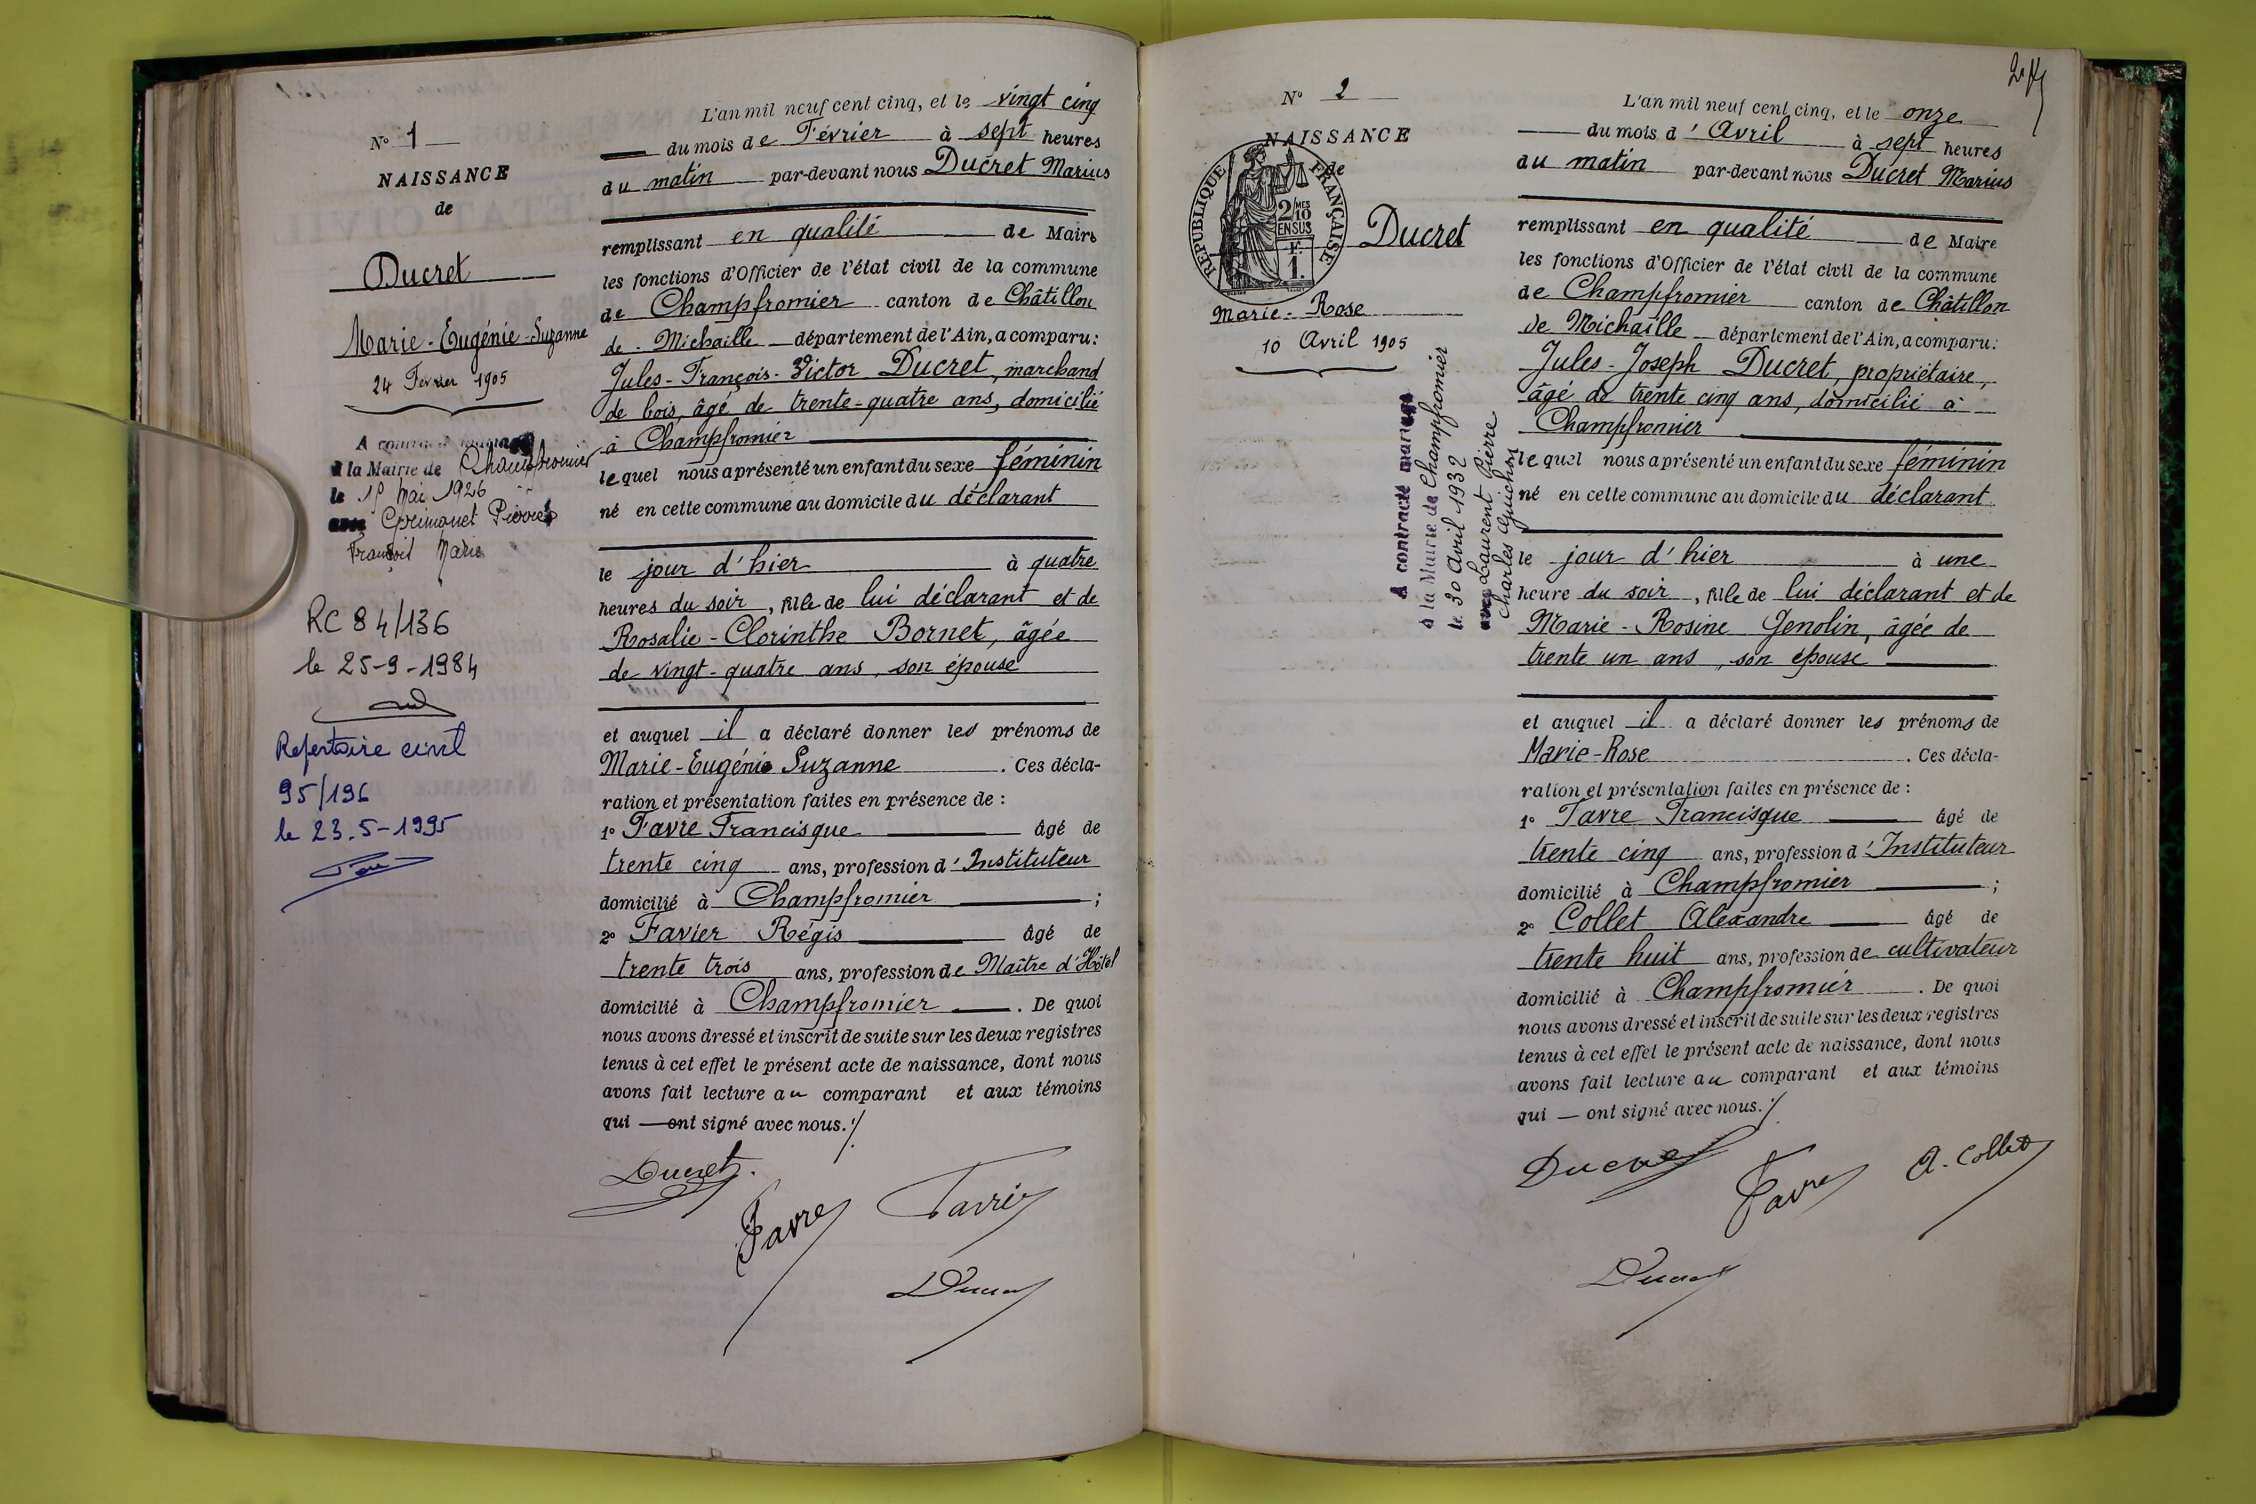 N° 1
NAISSANCE
de
Ducret
Marie-Eugénie-Suzanne
24 Février 1905
A contracté mariage
à la Mairie de Champfromier
le Mai 1926
avec Pierre
François Marie
RC 84/136
le 25-9-1984
Repertoire civil
95/196
le 23-5-1995
L'an mil neuf cent cinq, et le vingt cinq
du mois de Février à sept heures
du matin par-devant nous Ducret Marius
remplissant en qualité de Maire
les fonctions d'Officier de l'état civil de la commune
de Champfromier canton de Châtillon
de - Michaille département de l'Ain, a comparu:
Jules-François-Victor Ducret, marchand
de bois, âgé de trente-quatre ans, domicilié
à Champfromier
lequel nous a présenté un enfant du sexe féminin
né en cette commune au domicile du déclarant
le jour d'hier à quatre
heures du soir, fille de lui déclarant et de
Rosalie-Clorinthe Bornet, âgée
de vingt-quatre ans, son épouse
et auquel il a déclaré donner les prénoms de
Marie-Eugénie Suzanne. Ces décla-
ration et présentation faites en présence de :
1° Favre Francisque âgé de
trente cinq ans, profession d'Instituteur
domicilié à Champfromier ;
2° Favier Régis âgé de
trente trois ans, profession de Maître d'Hôtel
domicilié à Champfromier. De quoi
nous avons dressé et inscrit de suite sur les deux registres
tenus à cet effet le présent acte de naissance, dont nous
avons fait lecture au comparant et aux témoins
qui — ont signé avec nous./.
Ducret
Favre Favier
Ducret
N° 2
NAISSANCE
de
REPUBLIQUE FRANÇAISE
2/10 MES
EN SUS
F.
1.
Ducret
Marie-Rose
10 Avril 1905
A contracté mariage
à la Mairie de Champfromier
le 30 Avril 1932
avec Laurent Pierre
Charles Guichon
L'an mil neuf cent cinq, et le onze
du mois d'Avril à sept heures
du matin par-devant nous Ducret Marius
remplissant en qualité de Maire
les fonctions d'Officier de l'état civil de la commune
de Champfromier canton de Châtillon
de Michaille département de l'Ain, a comparu:
Jules-Joseph Ducret, propriétaire,
âgé de trente cinq ans, domicilié à
Champfromier
lequel nous a présenté un enfant du sexe féminin
né en cette commune au domicile du déclarant
le jour d'hier à une
heure du soir, fille de lui déclarant et de
Marie-Rosine Genolin, âgée de
trente un ans, son épouse
et auquel il a déclaré donner les prénoms de
Marie-Rose. Ces décla-
ration et présentation faites en présence de :
1° Favre Francisque âgé de
trente cinq ans, profession d'Instituteur
domicilié à Champfromier ;
2° Collet Alexandre âgé de
trente huit ans, profession de cultivateur
domicilié à Champfromier. De quoi
nous avons dressé et inscrit de suite sur les deux registres
tenus à cet effet le présent acte de naissance, dont nous
avons fait lecture au comparant et aux témoins
qui — ont signé avec nous./.
Ducret Favre A. Collet
Ducret